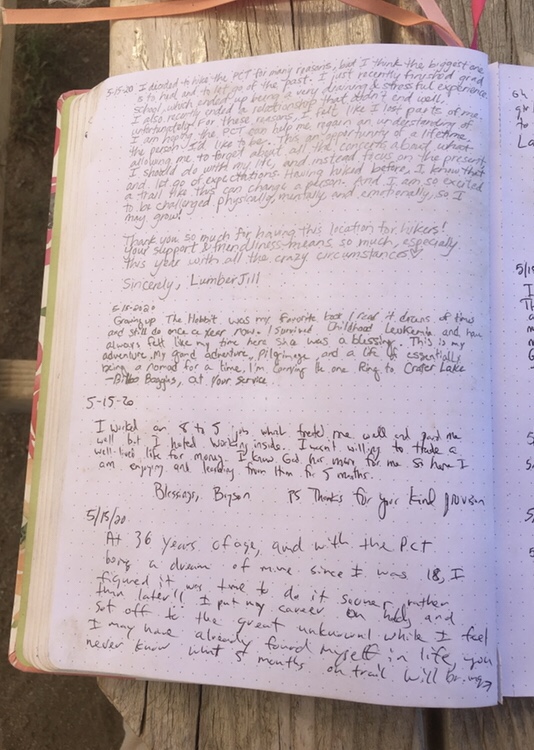 5-15-20 I decided to hike the PCT for many reasons, but I think the biggest one
is to heal and to let go of the past. I just recently finished grad
school, which ended up being a very draining & stressful experience.
I also recently ended a relationship that didn't end well,
unfortunately. For these reasons, I felt like I lost parts of me.
I am hoping the PCT can help me regain an understanding of
the person I'd like to be. This is an opportunity of a lifetime,
allowing me to forget about all the concerns about what
I should do with my life and instead focus on the present
and let go of expectations. Having hiked before, I know that
a trail like this can change a person. And I am so excited
to be challenged physically, mentally, and emotionally, so I
may grow!
Thank you so much for having this location for hikers!
Your support & friendliness means so much, especially
this year with all the crazy circumstances
Sincerely, LumberJill
5-15-2020
Growing up The Hobbit was my favorite book I read it dozens of times
and still do once a year now. I survived Childhood Leukemia and have
always felt like my time here was a blessing. This is my
adventure. My grand adventure, Pilgrimage, and a life of essentially
being a nomad for a time. I'm carrying the one Ring to Crater Lake
-Bilbo Baggins, at your service
5-15-20
I worked an 8 to 5 job which treated me well and paid me
well but I hated working inside. I wasn't willing to trade a
well-lived life for money. I know God has more for me so here I
am enjoying and learning from Him for 5 months.
Blessings, PS Thanks for your kind provision
5/15/20
At 36 years of age, and with the PCT
being a dream of mine since I was 18, I
figured it was time to do it sooner rather
than later!! I put my career on hold and
set off to the great unknown while I feel
I may have already found myself in life, you
never know what 5 months on trail will bring→
5/15